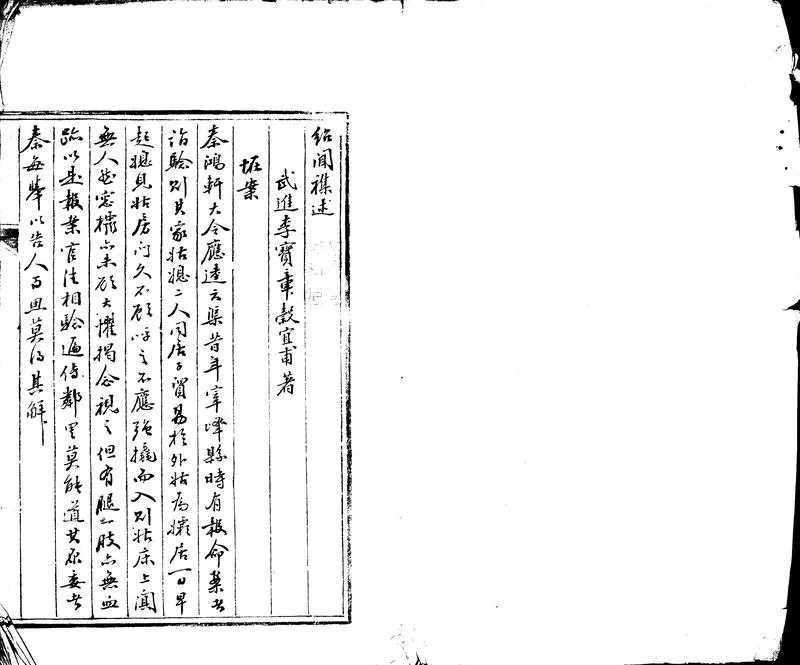 紹聞襍述
武進李寶章穀宜甫著
怪案
秦鴻軒大令應逵云渠昔年宰嶧縣時有報命案者
詣驗則其家姑媳二人同居子貿易於外姑為孀居一日早
起媳見姑房門久不啟呼之不應強撬而入則姑床上闃
無人然窗櫺亦未啟大懼揭衾視之但有腿一肢亦無血
跡以是報案官往相驗遍傳鄰里莫能道其原委者
秦每舉以告人而思莫得其解